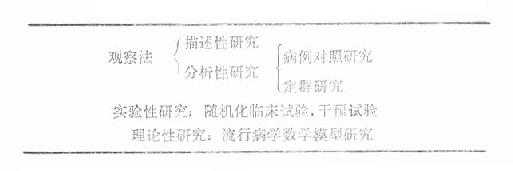 描述性研究
观察法
病例对照研究
分析性研究
定群研究
实验性研究：随机化临床试验，干预试验
理论性研究：流行病学数学模型研究